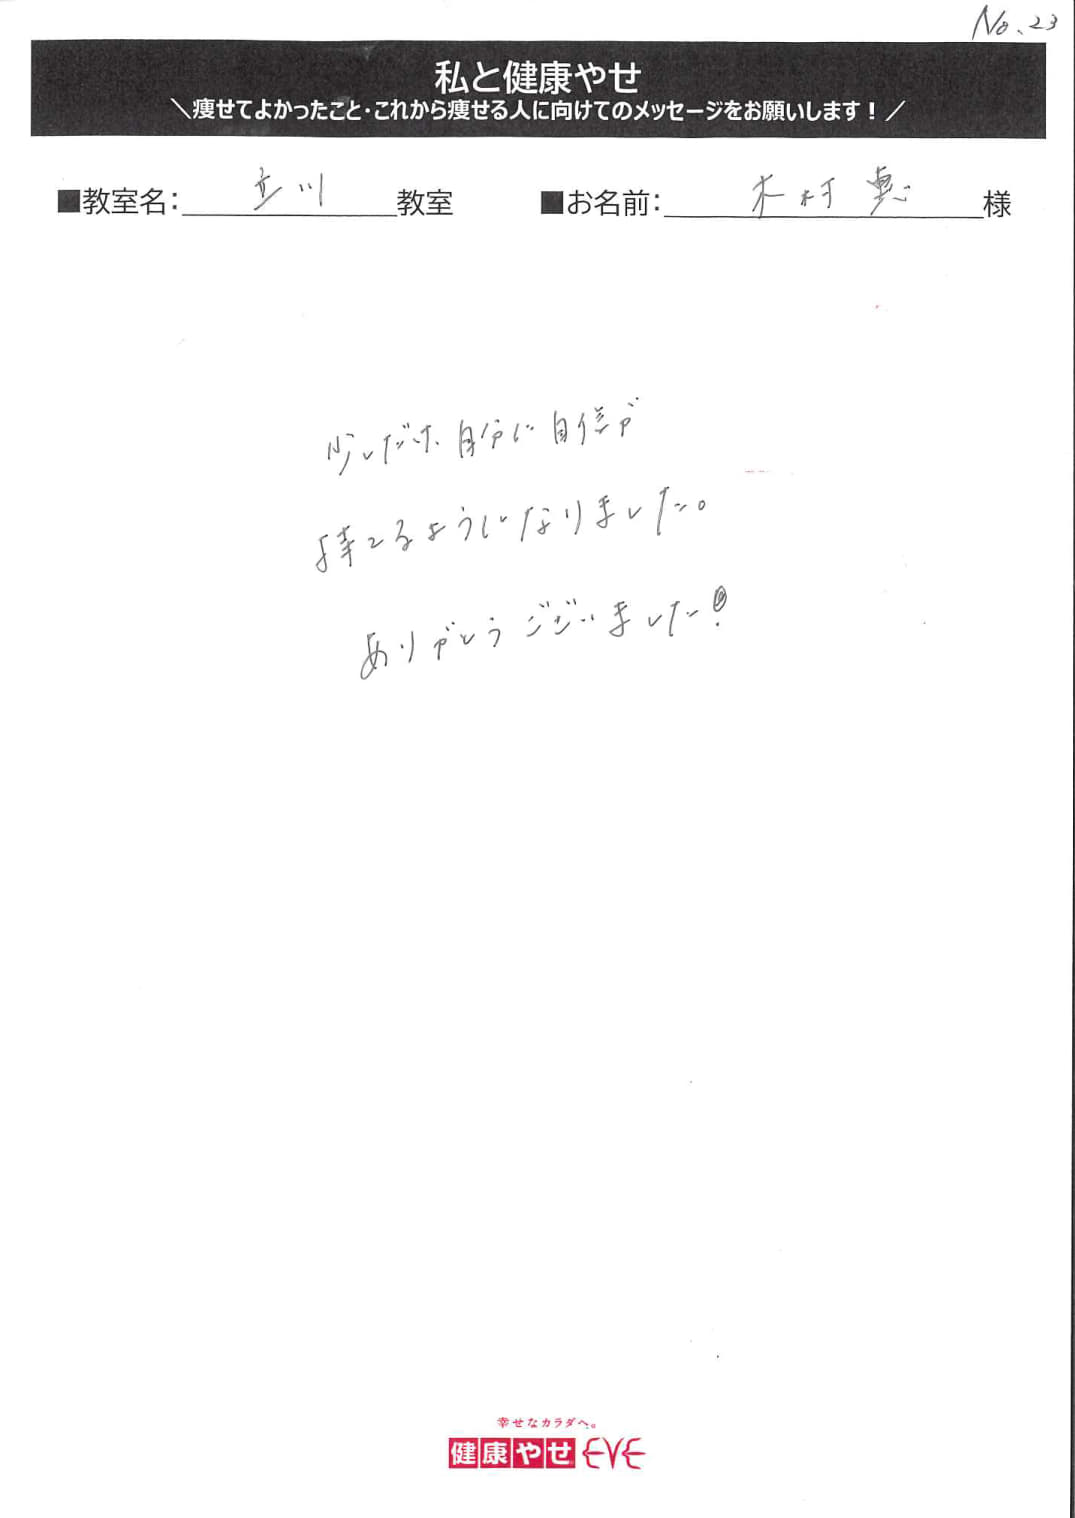 No.23
私と健康やせ
＼痩せてよかったこと・これから痩せる人に向けてのメッセージをお願いします！／
■教室名：立川教室 ■お名前：木村 恵様
少しだけ自分に自信が
持てるようになりました。
ありがとうございました!
幸せなカラダへ。
健康やせ EVE